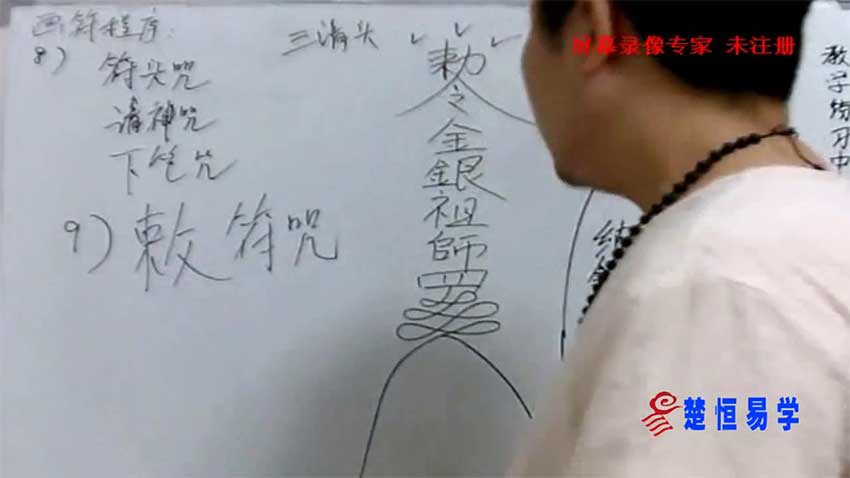 画符程序:
8)
符头咒
请神咒
下笔咒
9)敕符咒
三清头
敕
令
金
銀
祖
師
屏幕录像专家 未注册
教学练习中
楚恒易学